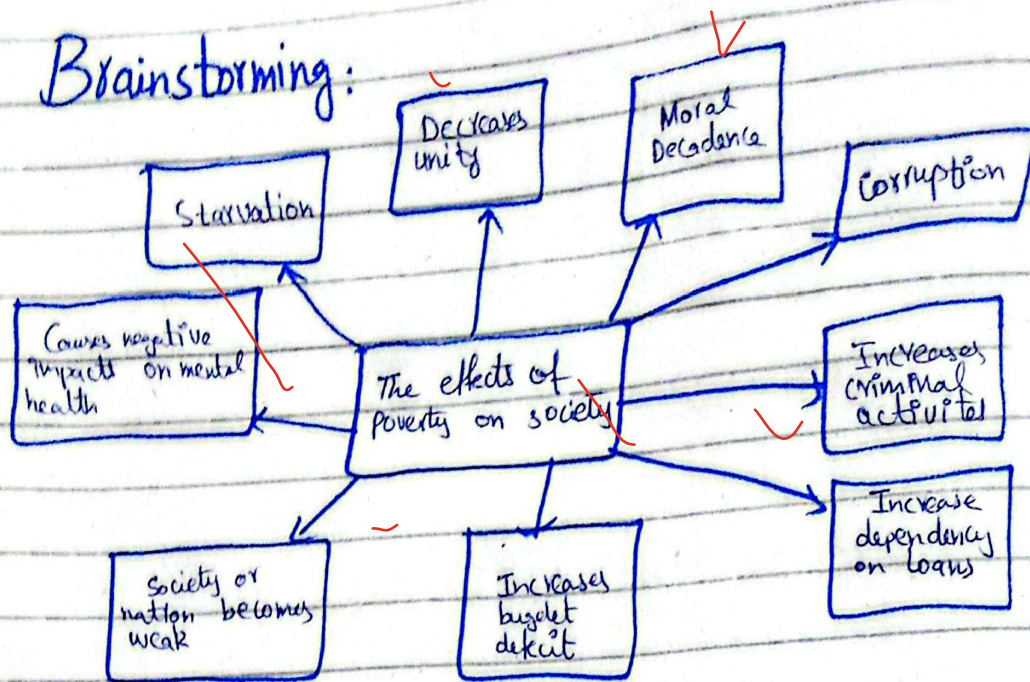 Brainstorming:
Decreases
unity
Moral
Decadence
Corruption
Starvation
Causes negative
impacts on mental
health
The effects of
poverty on society
Increases
criminal
activites
Increase
dependency
on loans
Society or
nation becomes
weak
Increases
bugdet
deficit